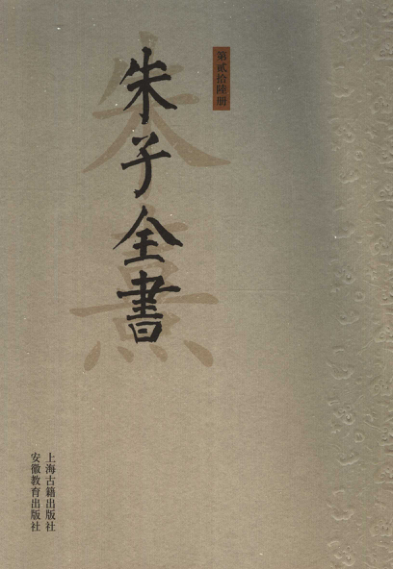 第貳拾陸册
朱子全書
朱熹
上海古籍出版社
安徽教育出版社